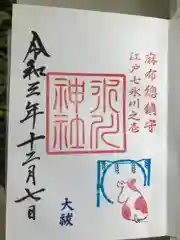 麻布總鎮守
江戸七氷川之壱
氷川
神社
令和三年十二月七日
大祓